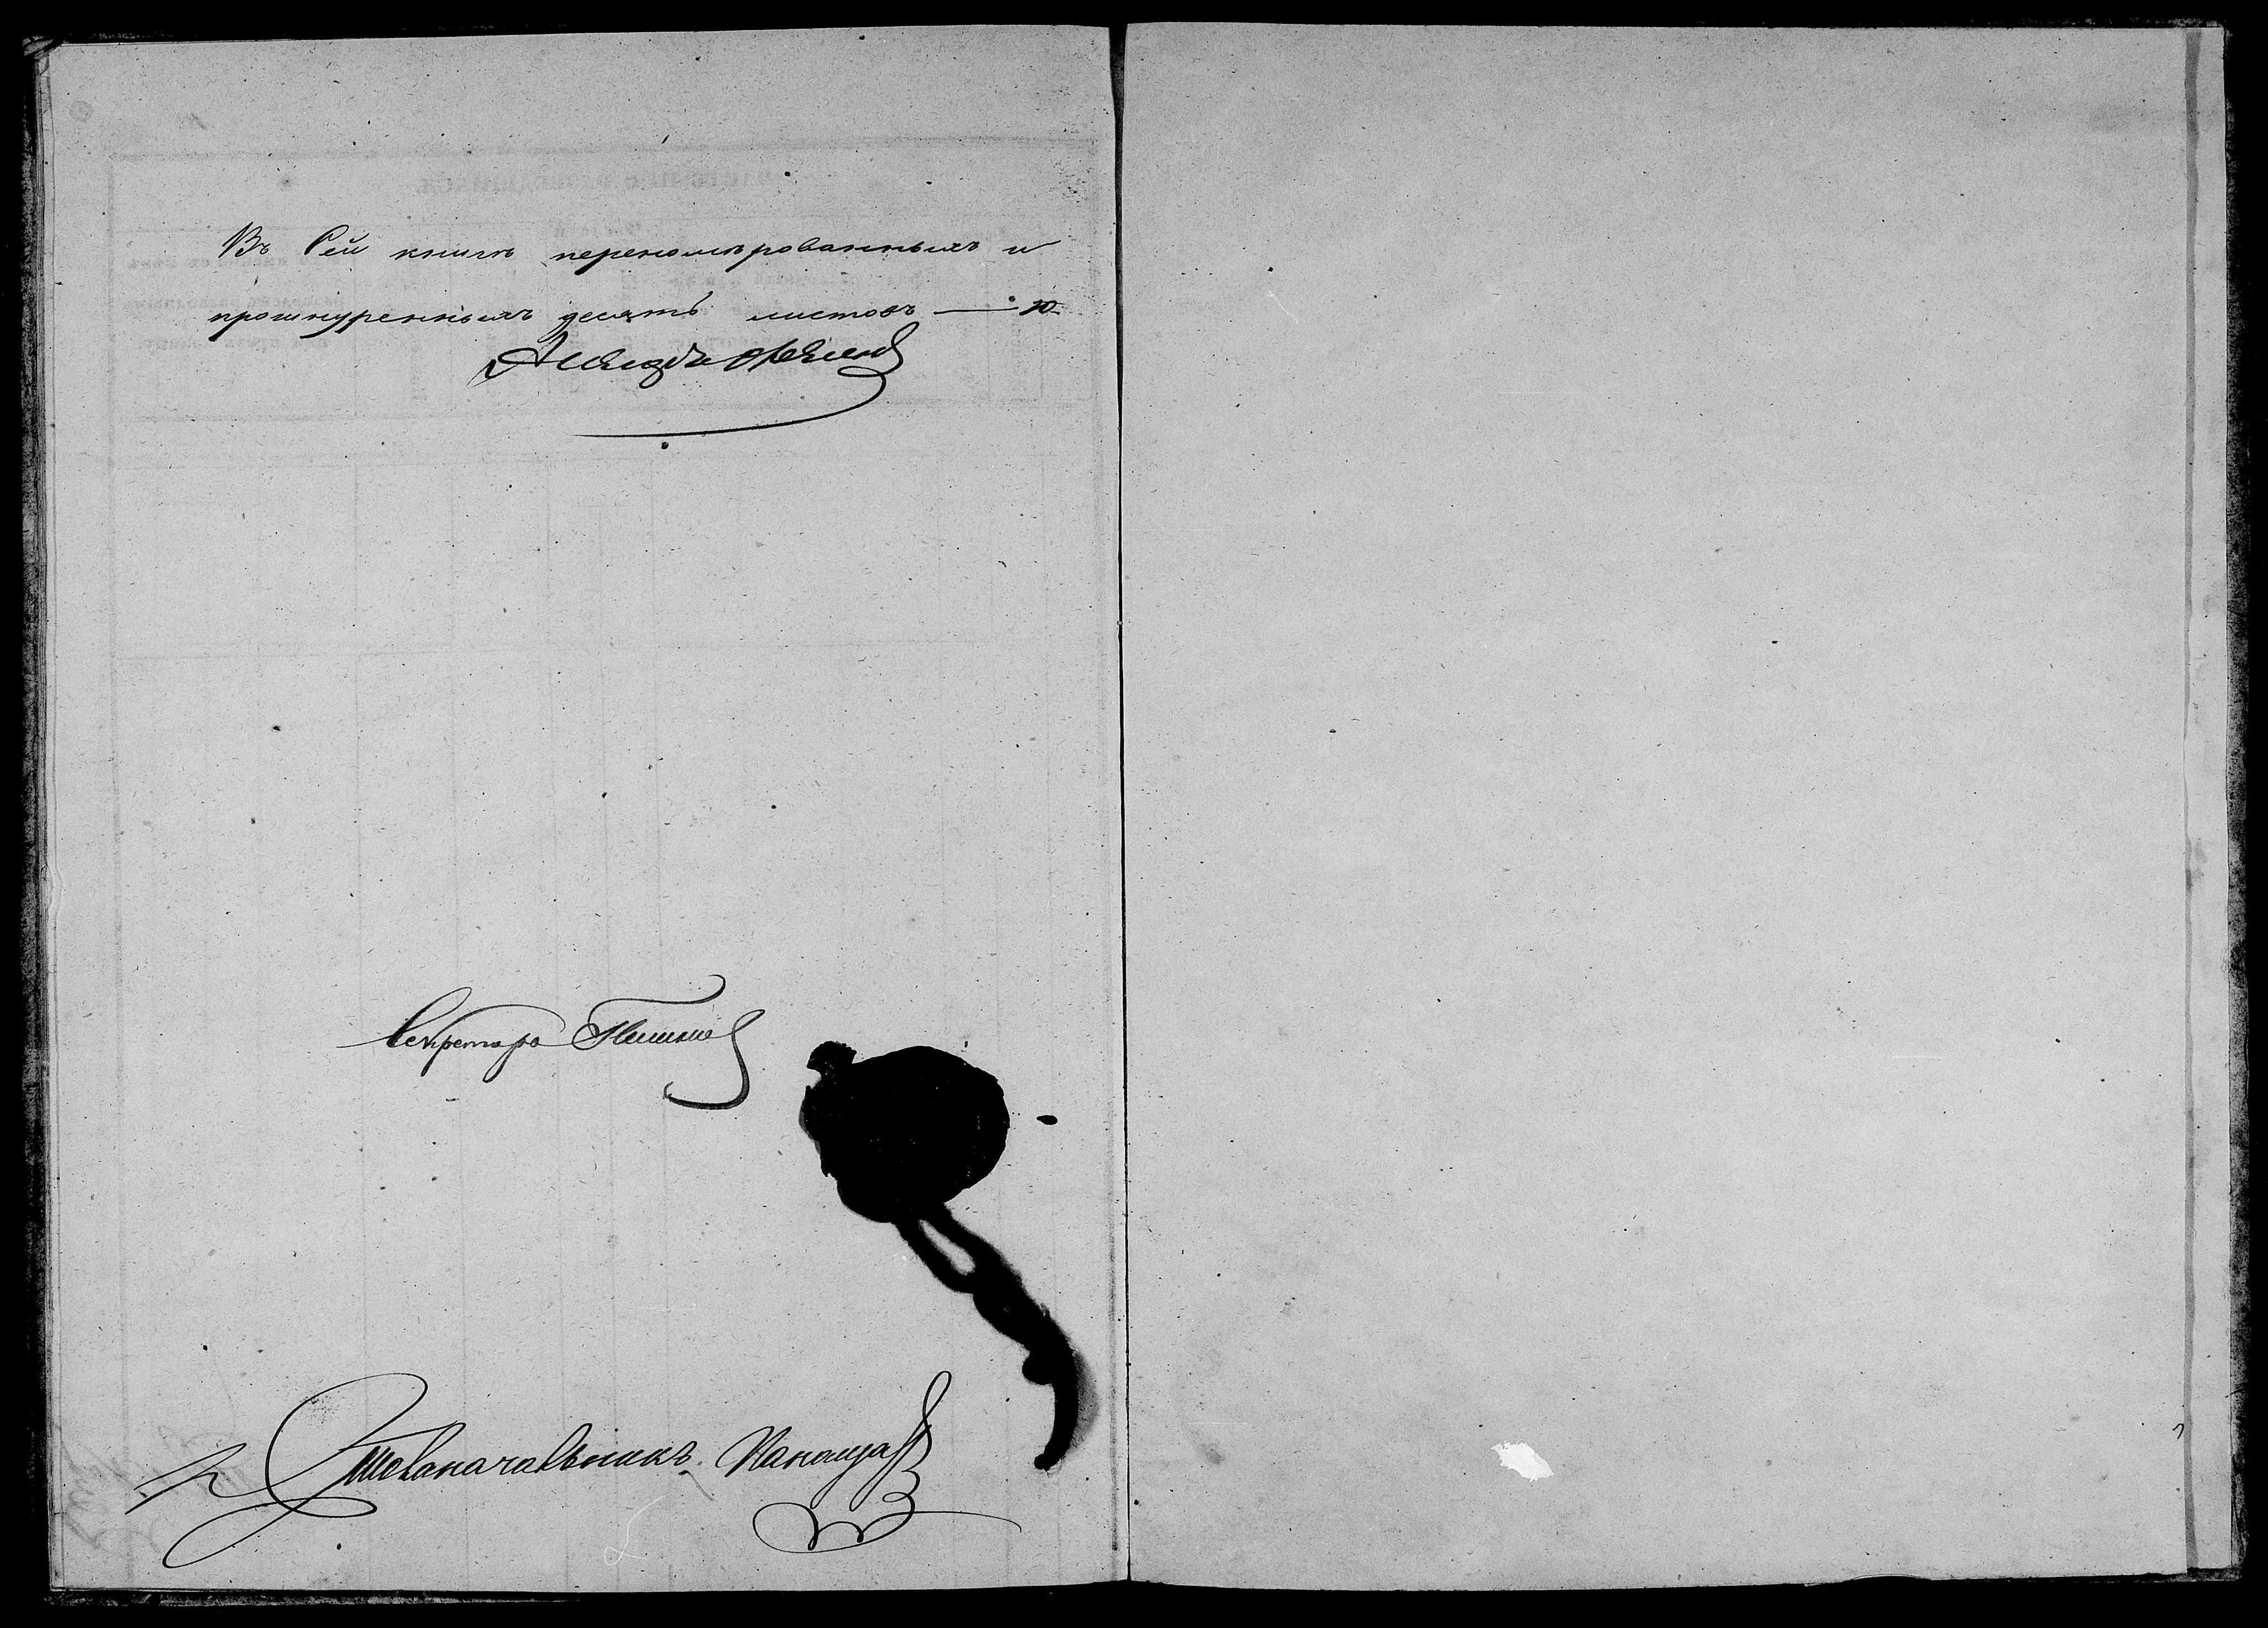 Въ Сей книгѣ перенумерованныхъ и
прошнуренныхъ десять листовъ — 10
Секретарь
Столоначальникъ